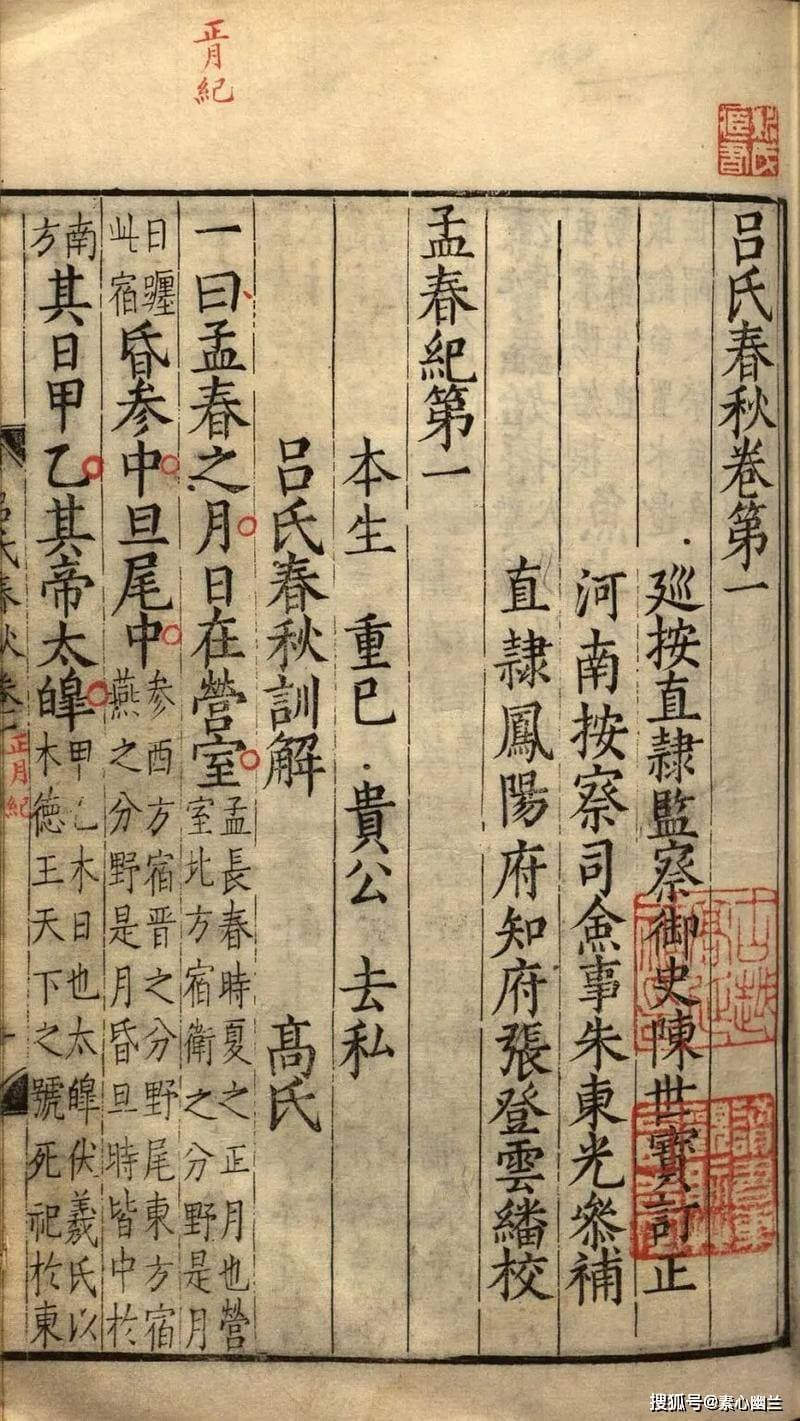 正月紀
呂氏春秋卷第一
廵按直隷監察御史陳世寳訂正
河南按察司僉事朱東光叅補
直隷鳳陽府知府張登雲繙校
孟春紀第一
本生 重已 貴公 去私
呂氏春秋訓解 高氏
一曰孟春之月日在營室孟長春時夏之正月也營室北方宿衛之分野是月
日躔此宿昏参中旦尾中参西方宿晋之分野尾東方宿燕之分野是月昏旦時皆中於
南方其日甲乙其帝太皥甲乙木日也太皥伏羲氏以木德王天下之號死祀於東
呂氏春秋卷一
正月紀
搜狐号@素心幽兰